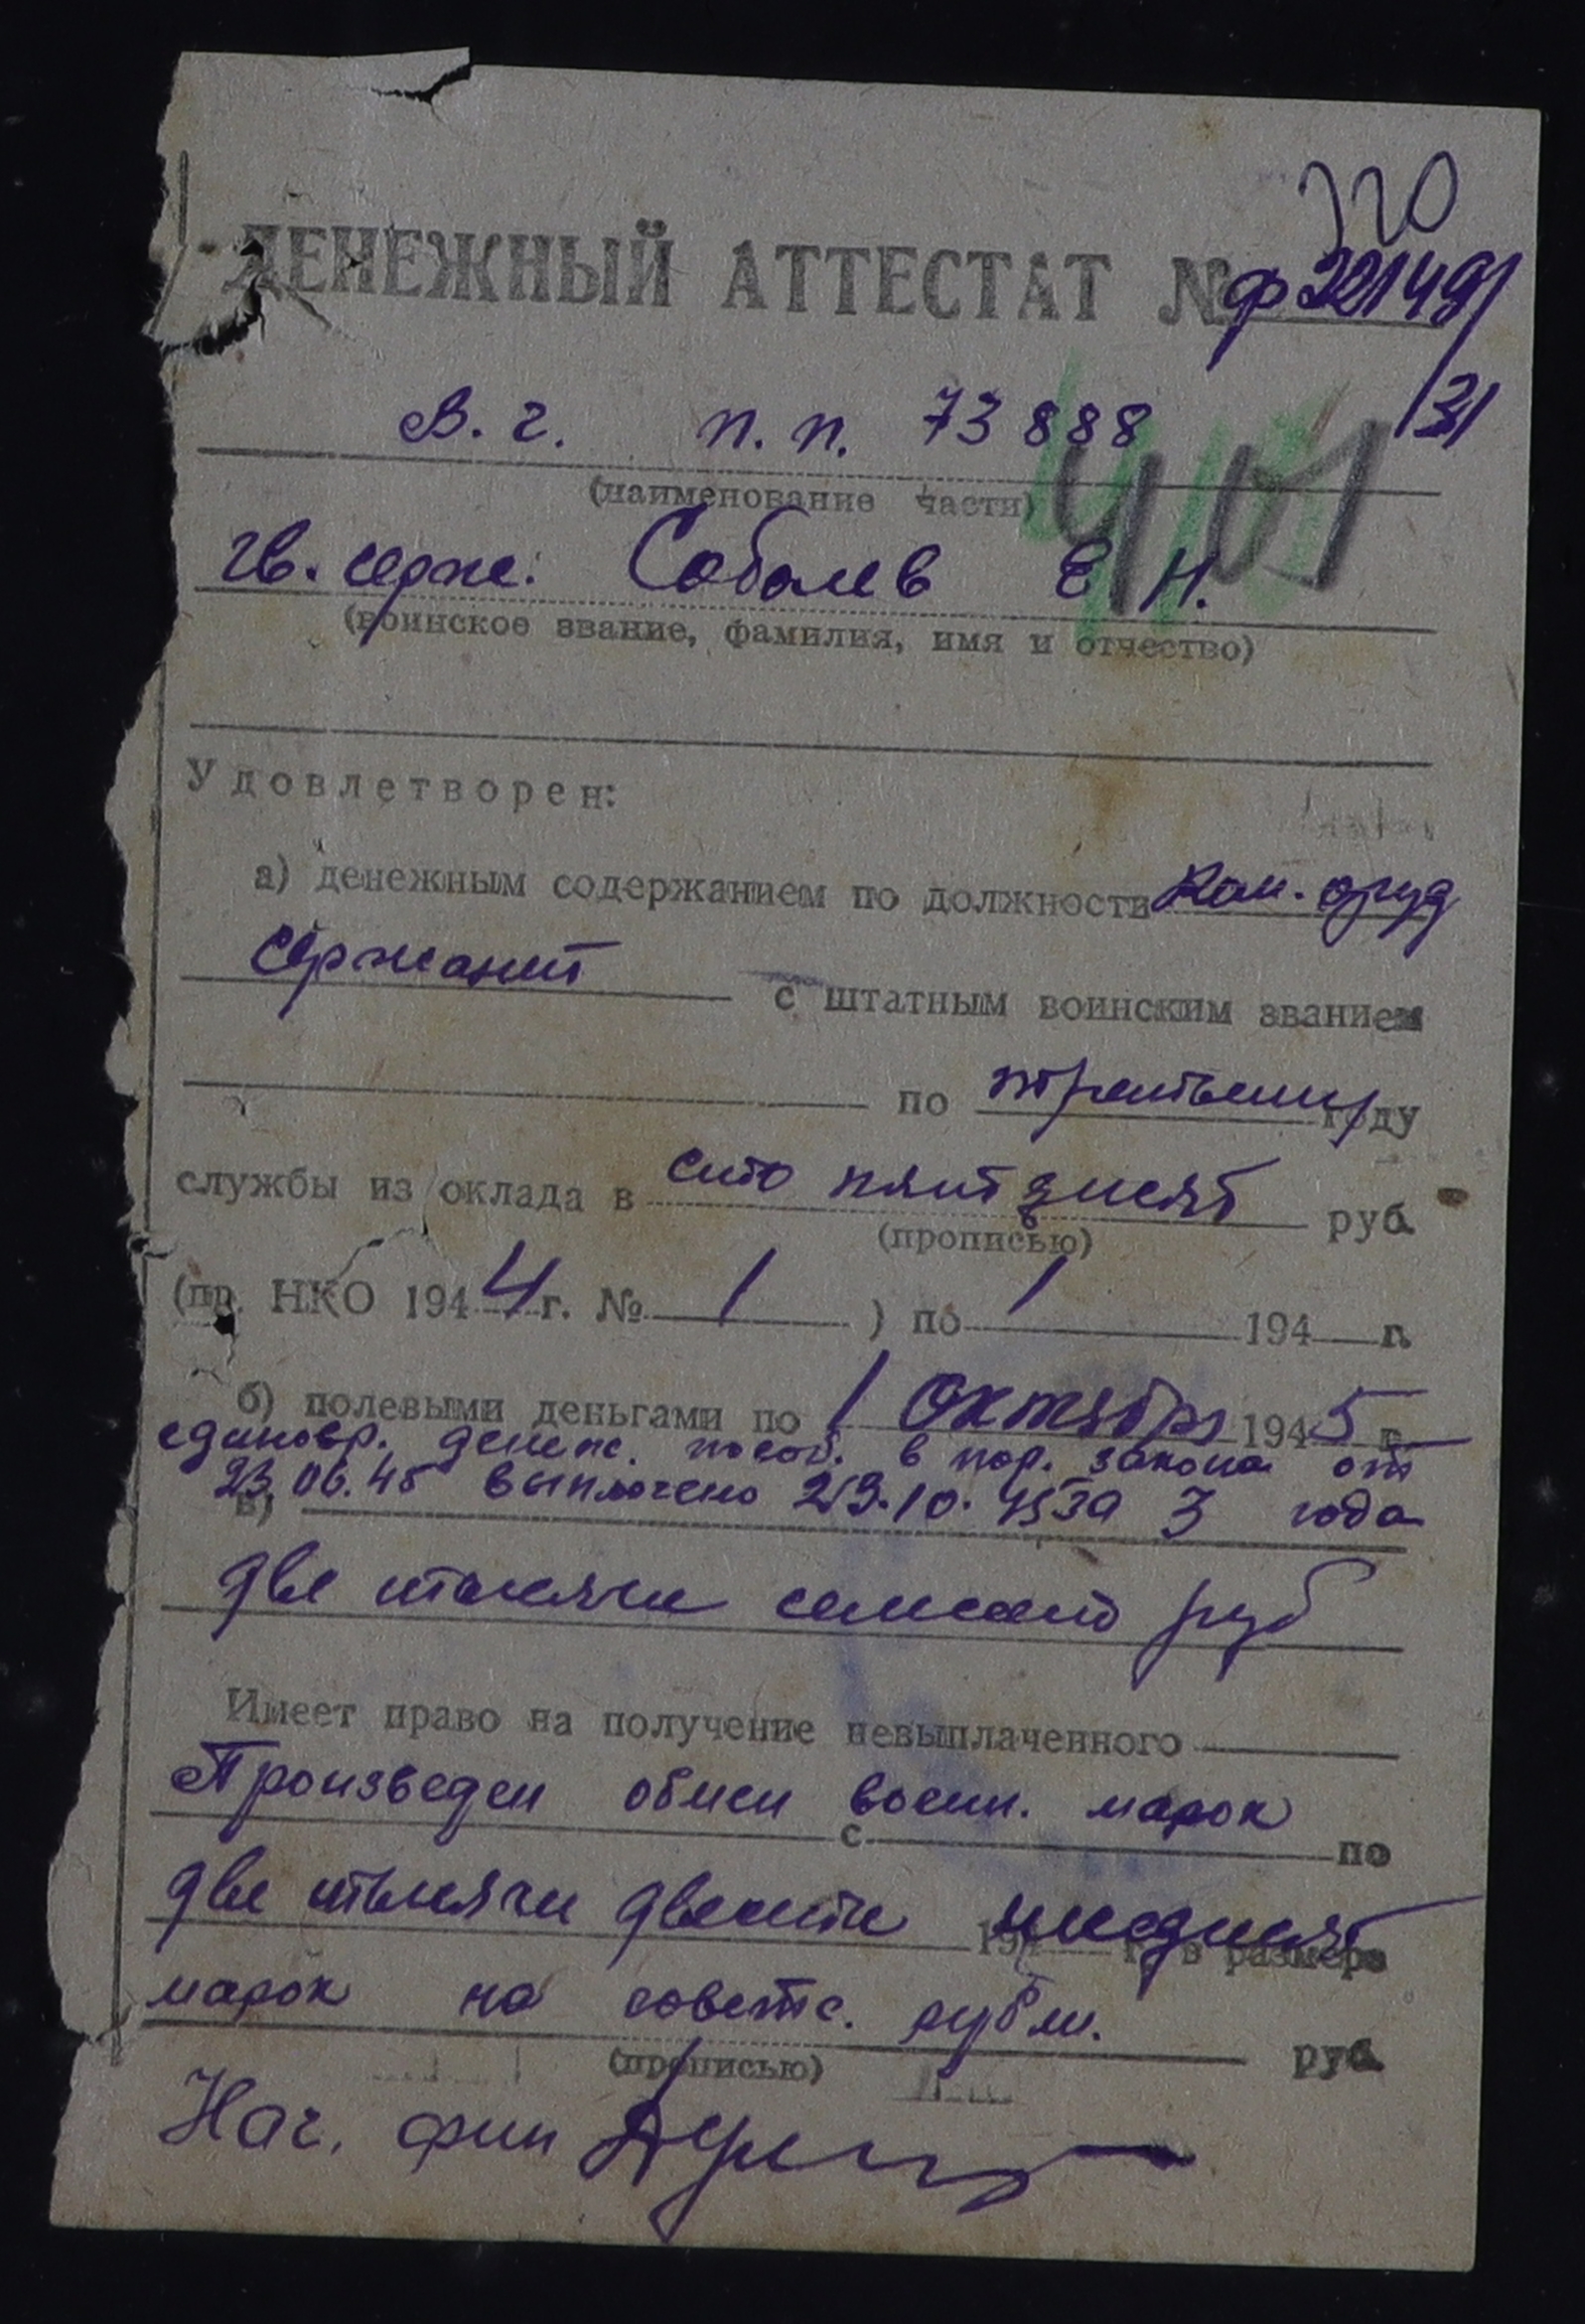 320
ДЕНЕЖНЫЙ АТТЕСТАТ № ф 221491
/31
В. ч. п. п. 73888
(наименование части)
401
гв. серж. Соболев Е Н.
(воинское звание, фамилия, имя и отчество)
Удовлетворен:
а) денежным содержанием по должности ком. оруд
сержант с штатным воинским званием
по третьему году
службы из оклада в сто пятдесят руб.
(прописью)
(пр. НКО 1944 г. № 1 ) по 1 194 г.
б) полевыми деньгами по 1 октября 1945 г.
единовр. денеж. пособ. в пор. закона от
23.06.45 выплочено 23.10.45 за 3 года
в)
две тысячи семсот руб
Имеет право на получение невыплаченного
Произведен обмен воен. марок
с по
две тысячи двести
194 г. в размере
марок на советс. рубли.
(прописью) руб.
Нач. фин